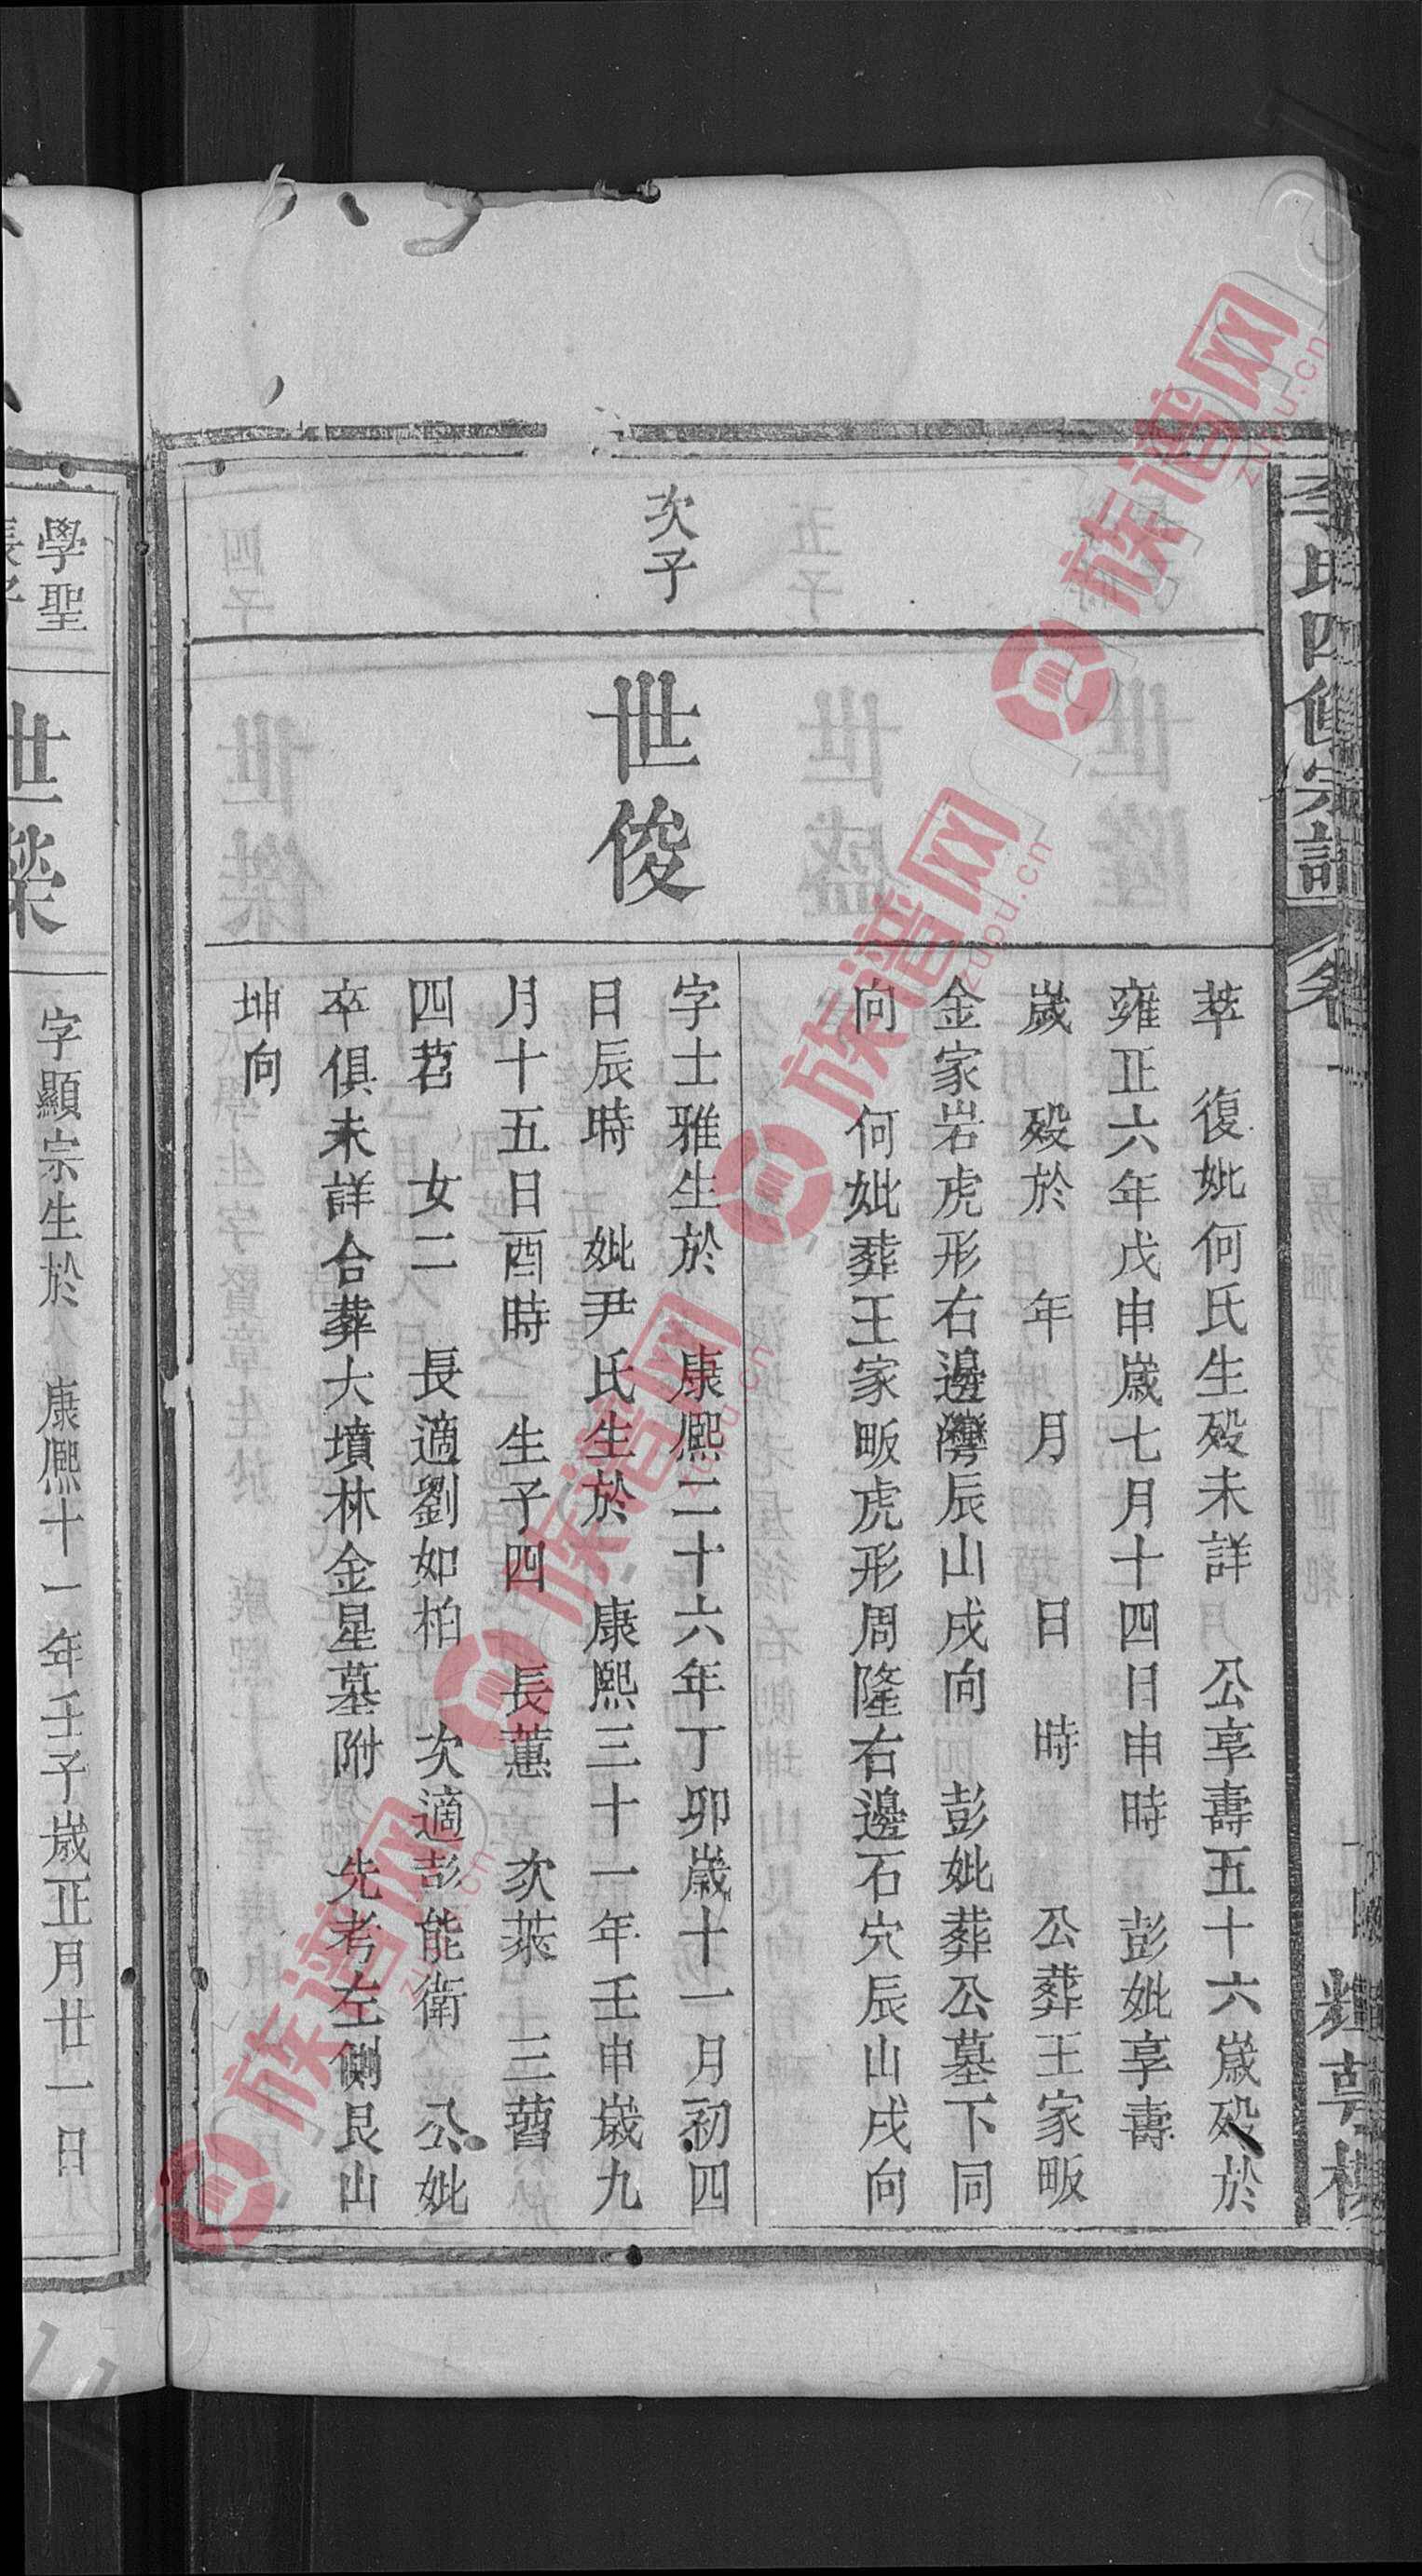 李氏四修宗譜
卷一
萃 復妣何氏生歿未詳 公享壽五十六歲歿於
雍正六年戊申歲七月十四日申時 彭妣享壽
歲 歿於 年 月 日 時 公葬王家畈
金家岩虎形右邊灣辰山戌向 彭妣葬公墓下同
向 何妣葬王家畈虎形周隆右邊石穴辰山戌向
次子
世俊
字士雅生於 康熙二十六年丁卯歲十一月初四
日辰時 妣尹氏生於 康熙三十一年壬申歲九
月十五日酉時 生子四 長蕙 次萊 三
四若 女二 長適劉如柏 次適彭能衛 公妣
卒俱未詳合葬大墳林金星墓附 先考左側艮山
坤向
學聖
長子
世榮
字顯宗生於 康熙十一年壬子歲正月廿一日
族谱网
zupu.cn
族谱网
zupu.cn
族谱网
zupu.cn
族谱网
zupu.cn